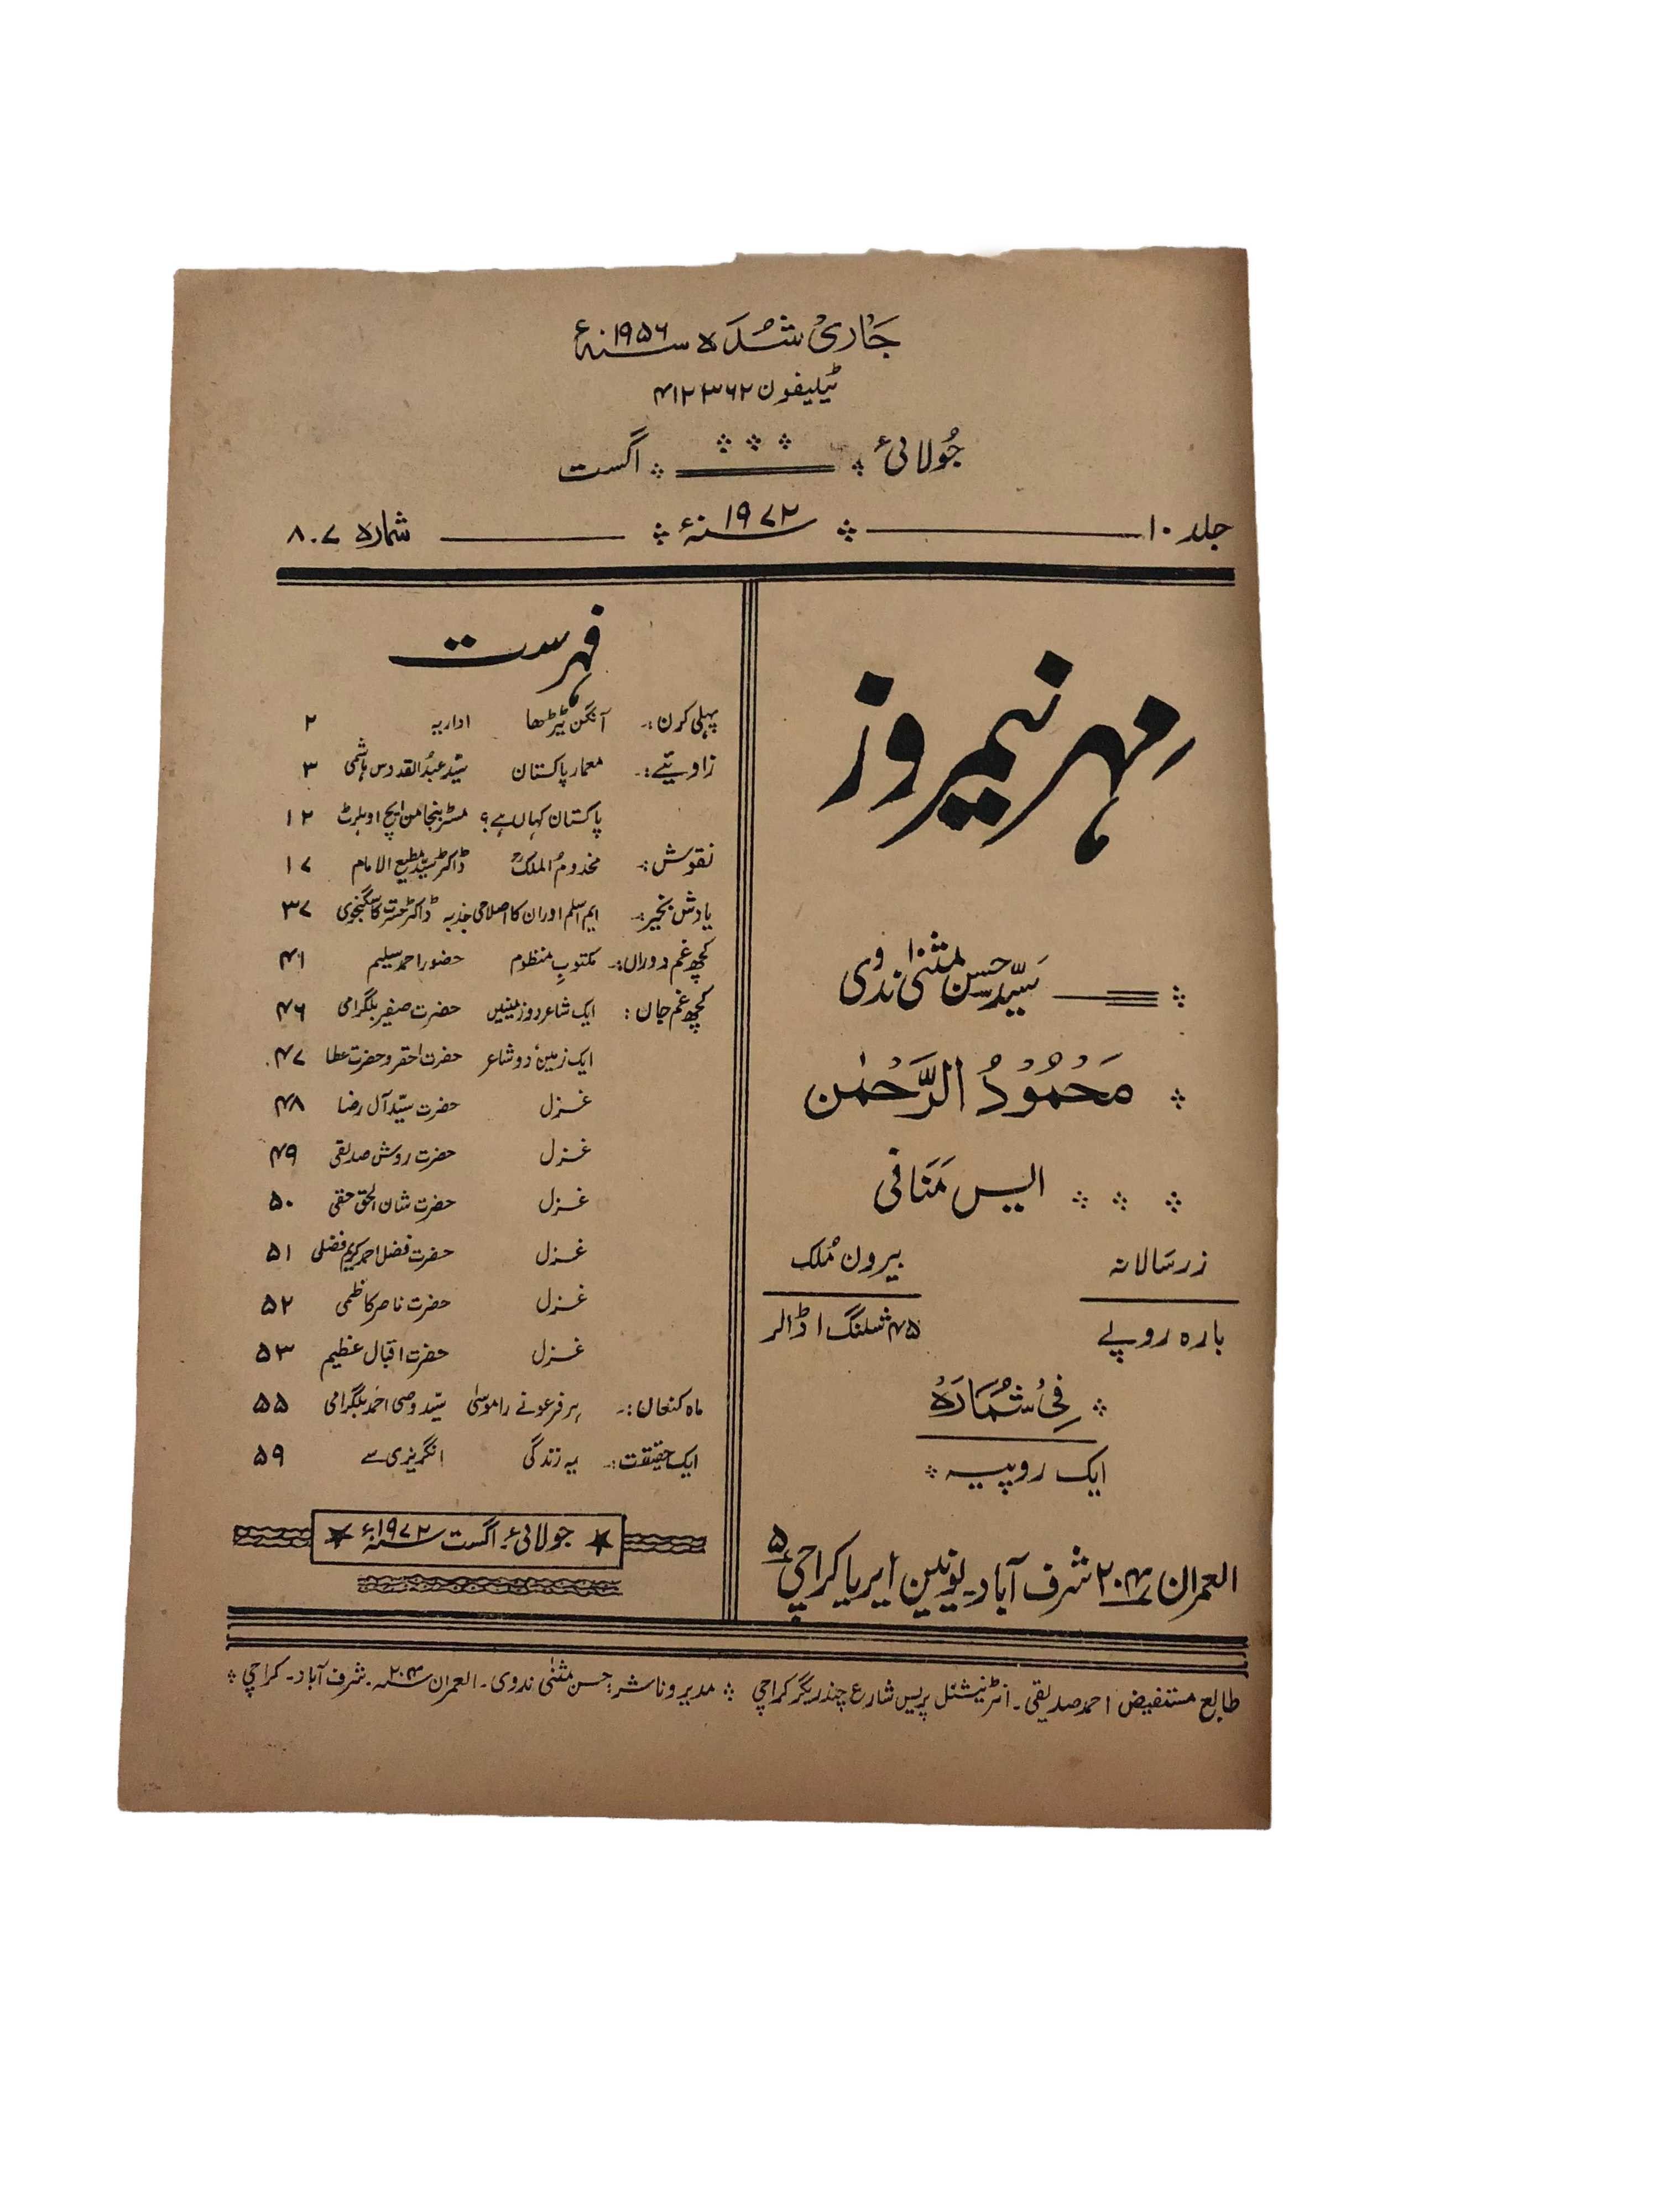 جاری شدہ سنہ ۱۹۵۶ء
ٹیلیفون ۴۱۲۳۶۲
جولائی اگست
جلد ۱۰ سنہ ۱۹۷۲ء شمارہ ۷۔۸
مہر نیمروز
سید حسن مثنیٰ ندوی
محمود الرحمٰن
ایس منافی
زر سالانہ بیرون ملک
بارہ روپے ۴۵ شلنگ ڈالر
فی شمارہ
ایک روپیہ
العمران ۲۰۴ شرف آباد۔ یونین ایریا کراچی ۵
فہرست
پہلی کرن:۔ آنگن ٹیڑھا اداریہ ۲
زاویئے:۔ معمار پاکستان سید عبدالقدوس ہاشمی ۳
پاکستان کہاں ہے؟ مسٹر بنجامن ایچ اوہلرٹ ۱۲
نقوش:۔ مخدوم الملک ڈاکٹر سید مطیع الامام ۱۷
یادش بخیر:۔ ایم اسلم اور ان کا اصلاحی جذبہ ڈاکٹر حسرت کاسگنجوی ۳۷
کچھ غم دوراں:۔ مکتوبِ منظوم حضور احمد سلیم ۴۱
کچھ غم جاں: ایک شاعر دو زمینیں حضرت صفیر بلگرامی ۴۶
ایک زمین دو شاعر حضرت احقر و حضرت عطا ۴۷
غزل حضرت سید آل رضا ۴۸
غزل حضرت روش صدیقی ۴۹
غزل حضرت شان الحق حقی ۵۰
غزل حضرت فضل احمد کریم فضلی ۵۱
غزل حضرت ناصر کاظمی ۵۲
غزل حضرت اقبال عظیم ۵۳
ماہ کنعاں:۔ ہر فرعونے را موسیٰ سید وصی احمد بلگرامی ۵۵
ایک حقیقت:۔ یہ زندگی انگریزی سے ۵۹
جولائی۔ اگست سنہ ۱۹۷۲ء
طابع مستفیض احمد صدیقی۔ انٹرنیشنل پریس شارع چندریگر کراچی مدیر و ناشر: حسن مثنیٰ ندوی۔ العمران ۲۰۴۔ شرف آباد۔ کراچی